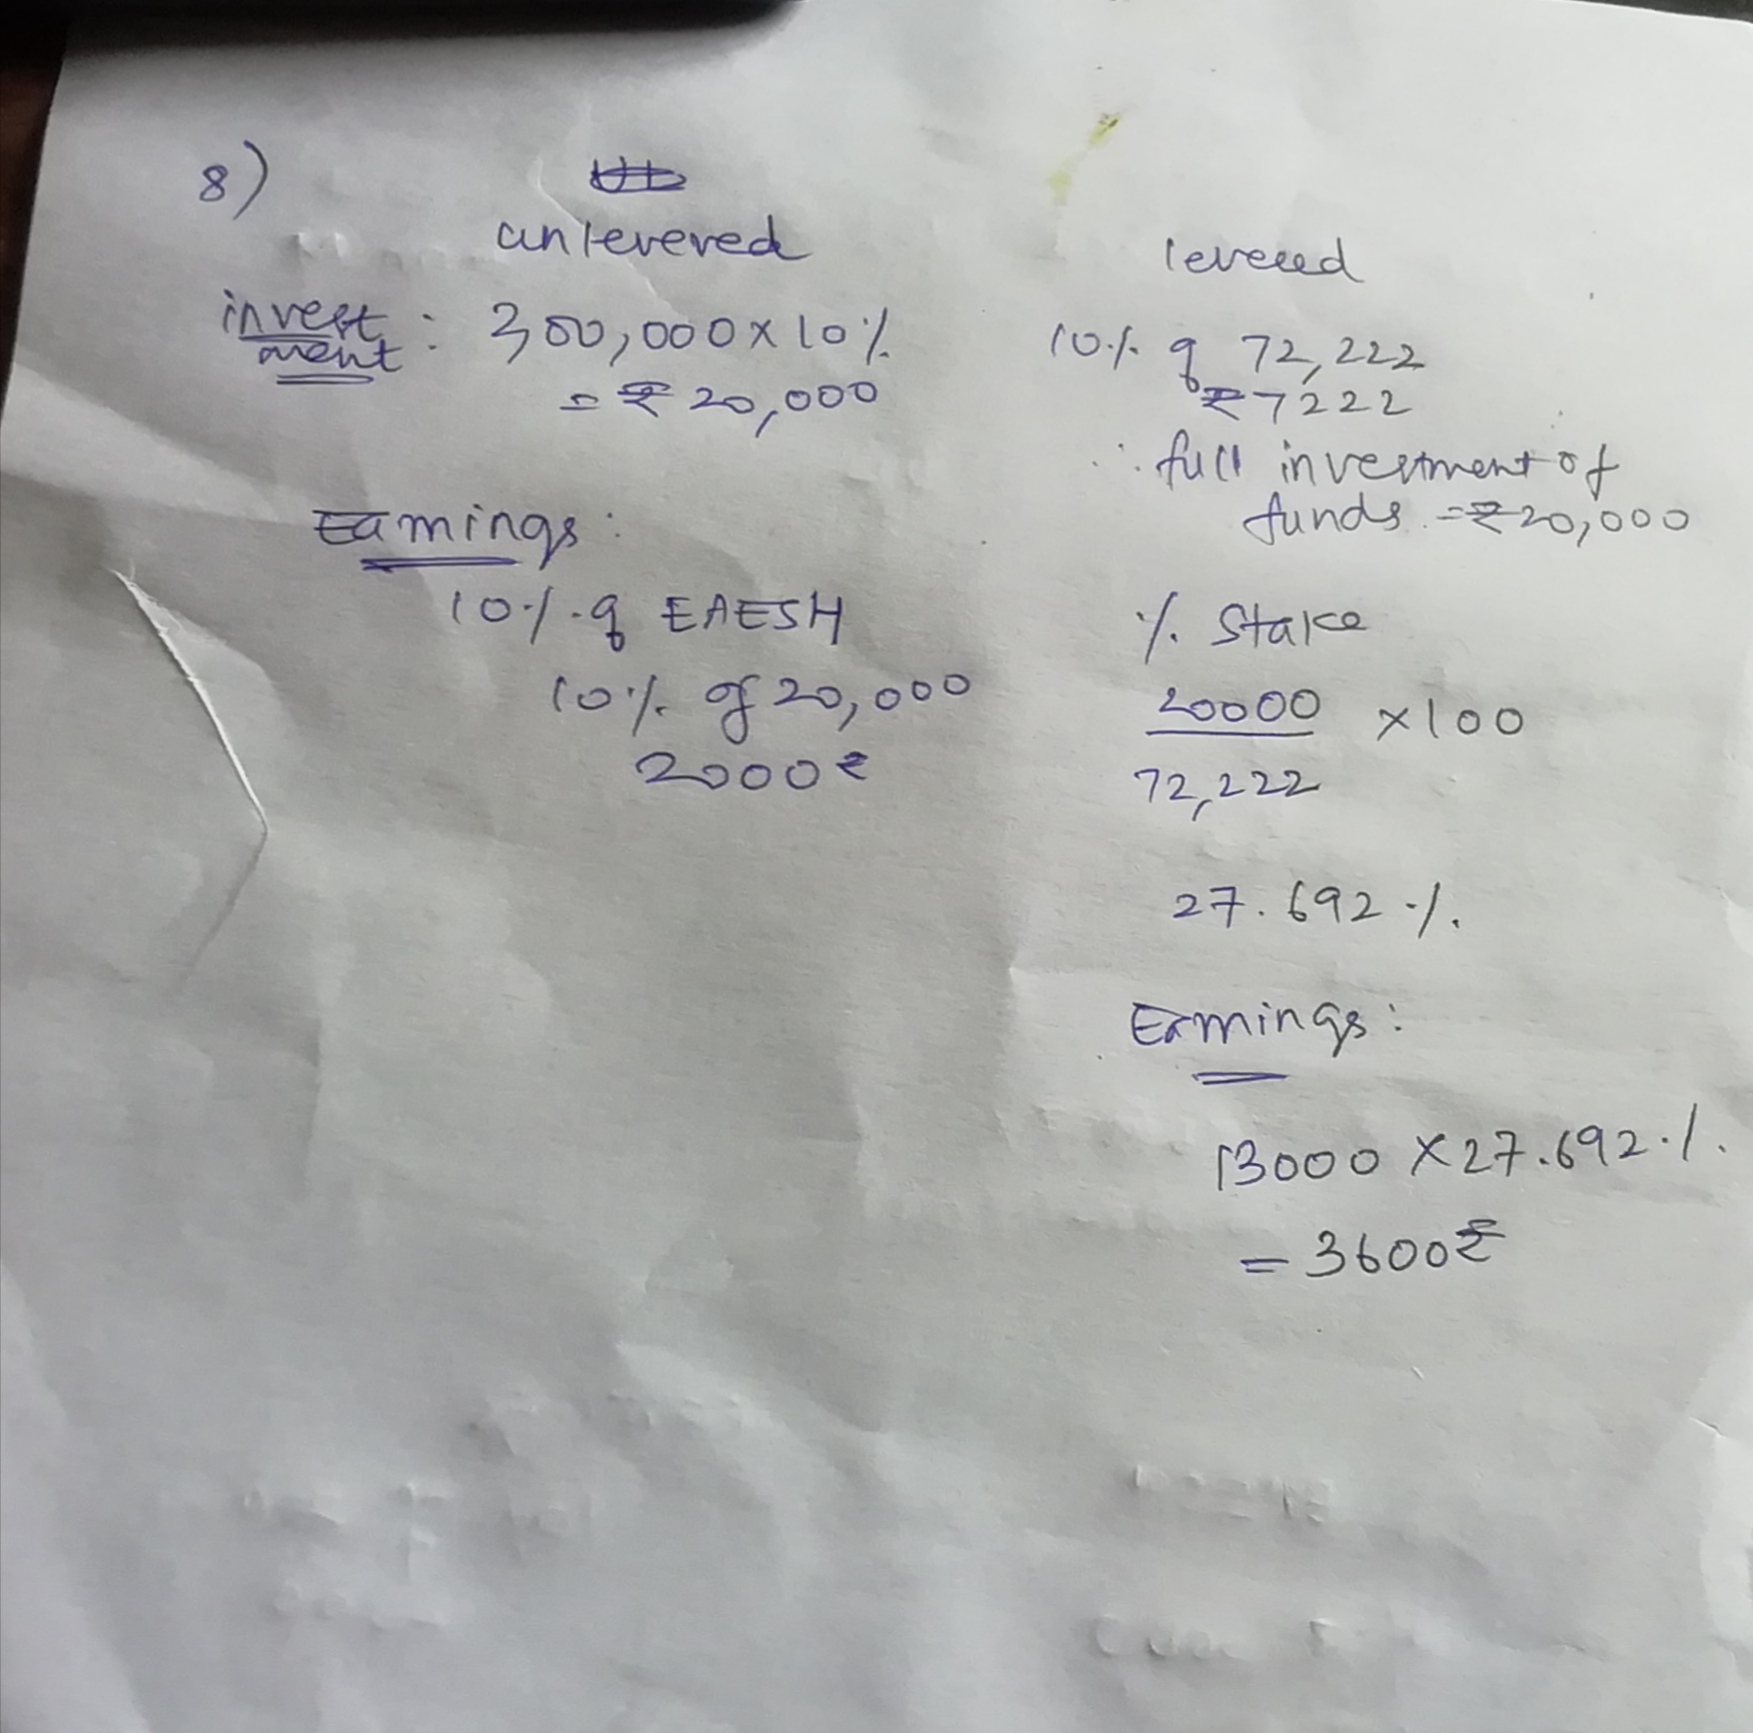 8)
unlevered
levered
investment : 300,000 x 10%
= ₹ 20,000
10% of 72,222
₹ 7222
∴ full investment of
funds = ₹ 20,000
Earnings :
10% of EAESH
10% of 20,000
2000 ₹
% Stake
20000 x 100
72,222
27.692 %
Earnings :
13000 x 27.692 %
= 3600 ₹